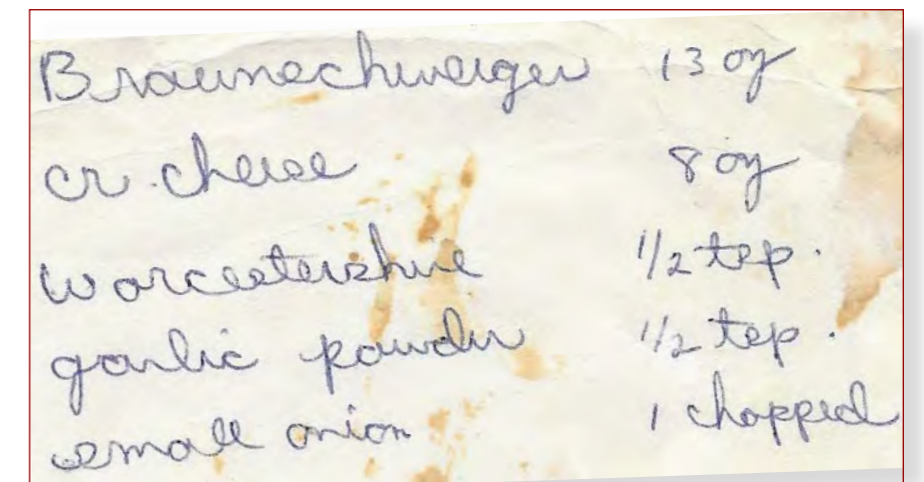 Braunschweiger 13 oz
cr. cheese 8 oz
worcestershire 1/2 tsp.
garlic powder 1/2 tsp.
small onion 1 chopped